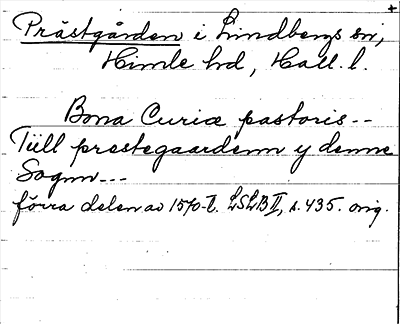 Prästgården i Lindbergs sn,
Himle hd, Hall. l.
Bona Curiæ pastoris--
Tiill prestegaardenn y denne
Sognn---
förra delen av 1570-t. LSLB II, s. 435. orig.